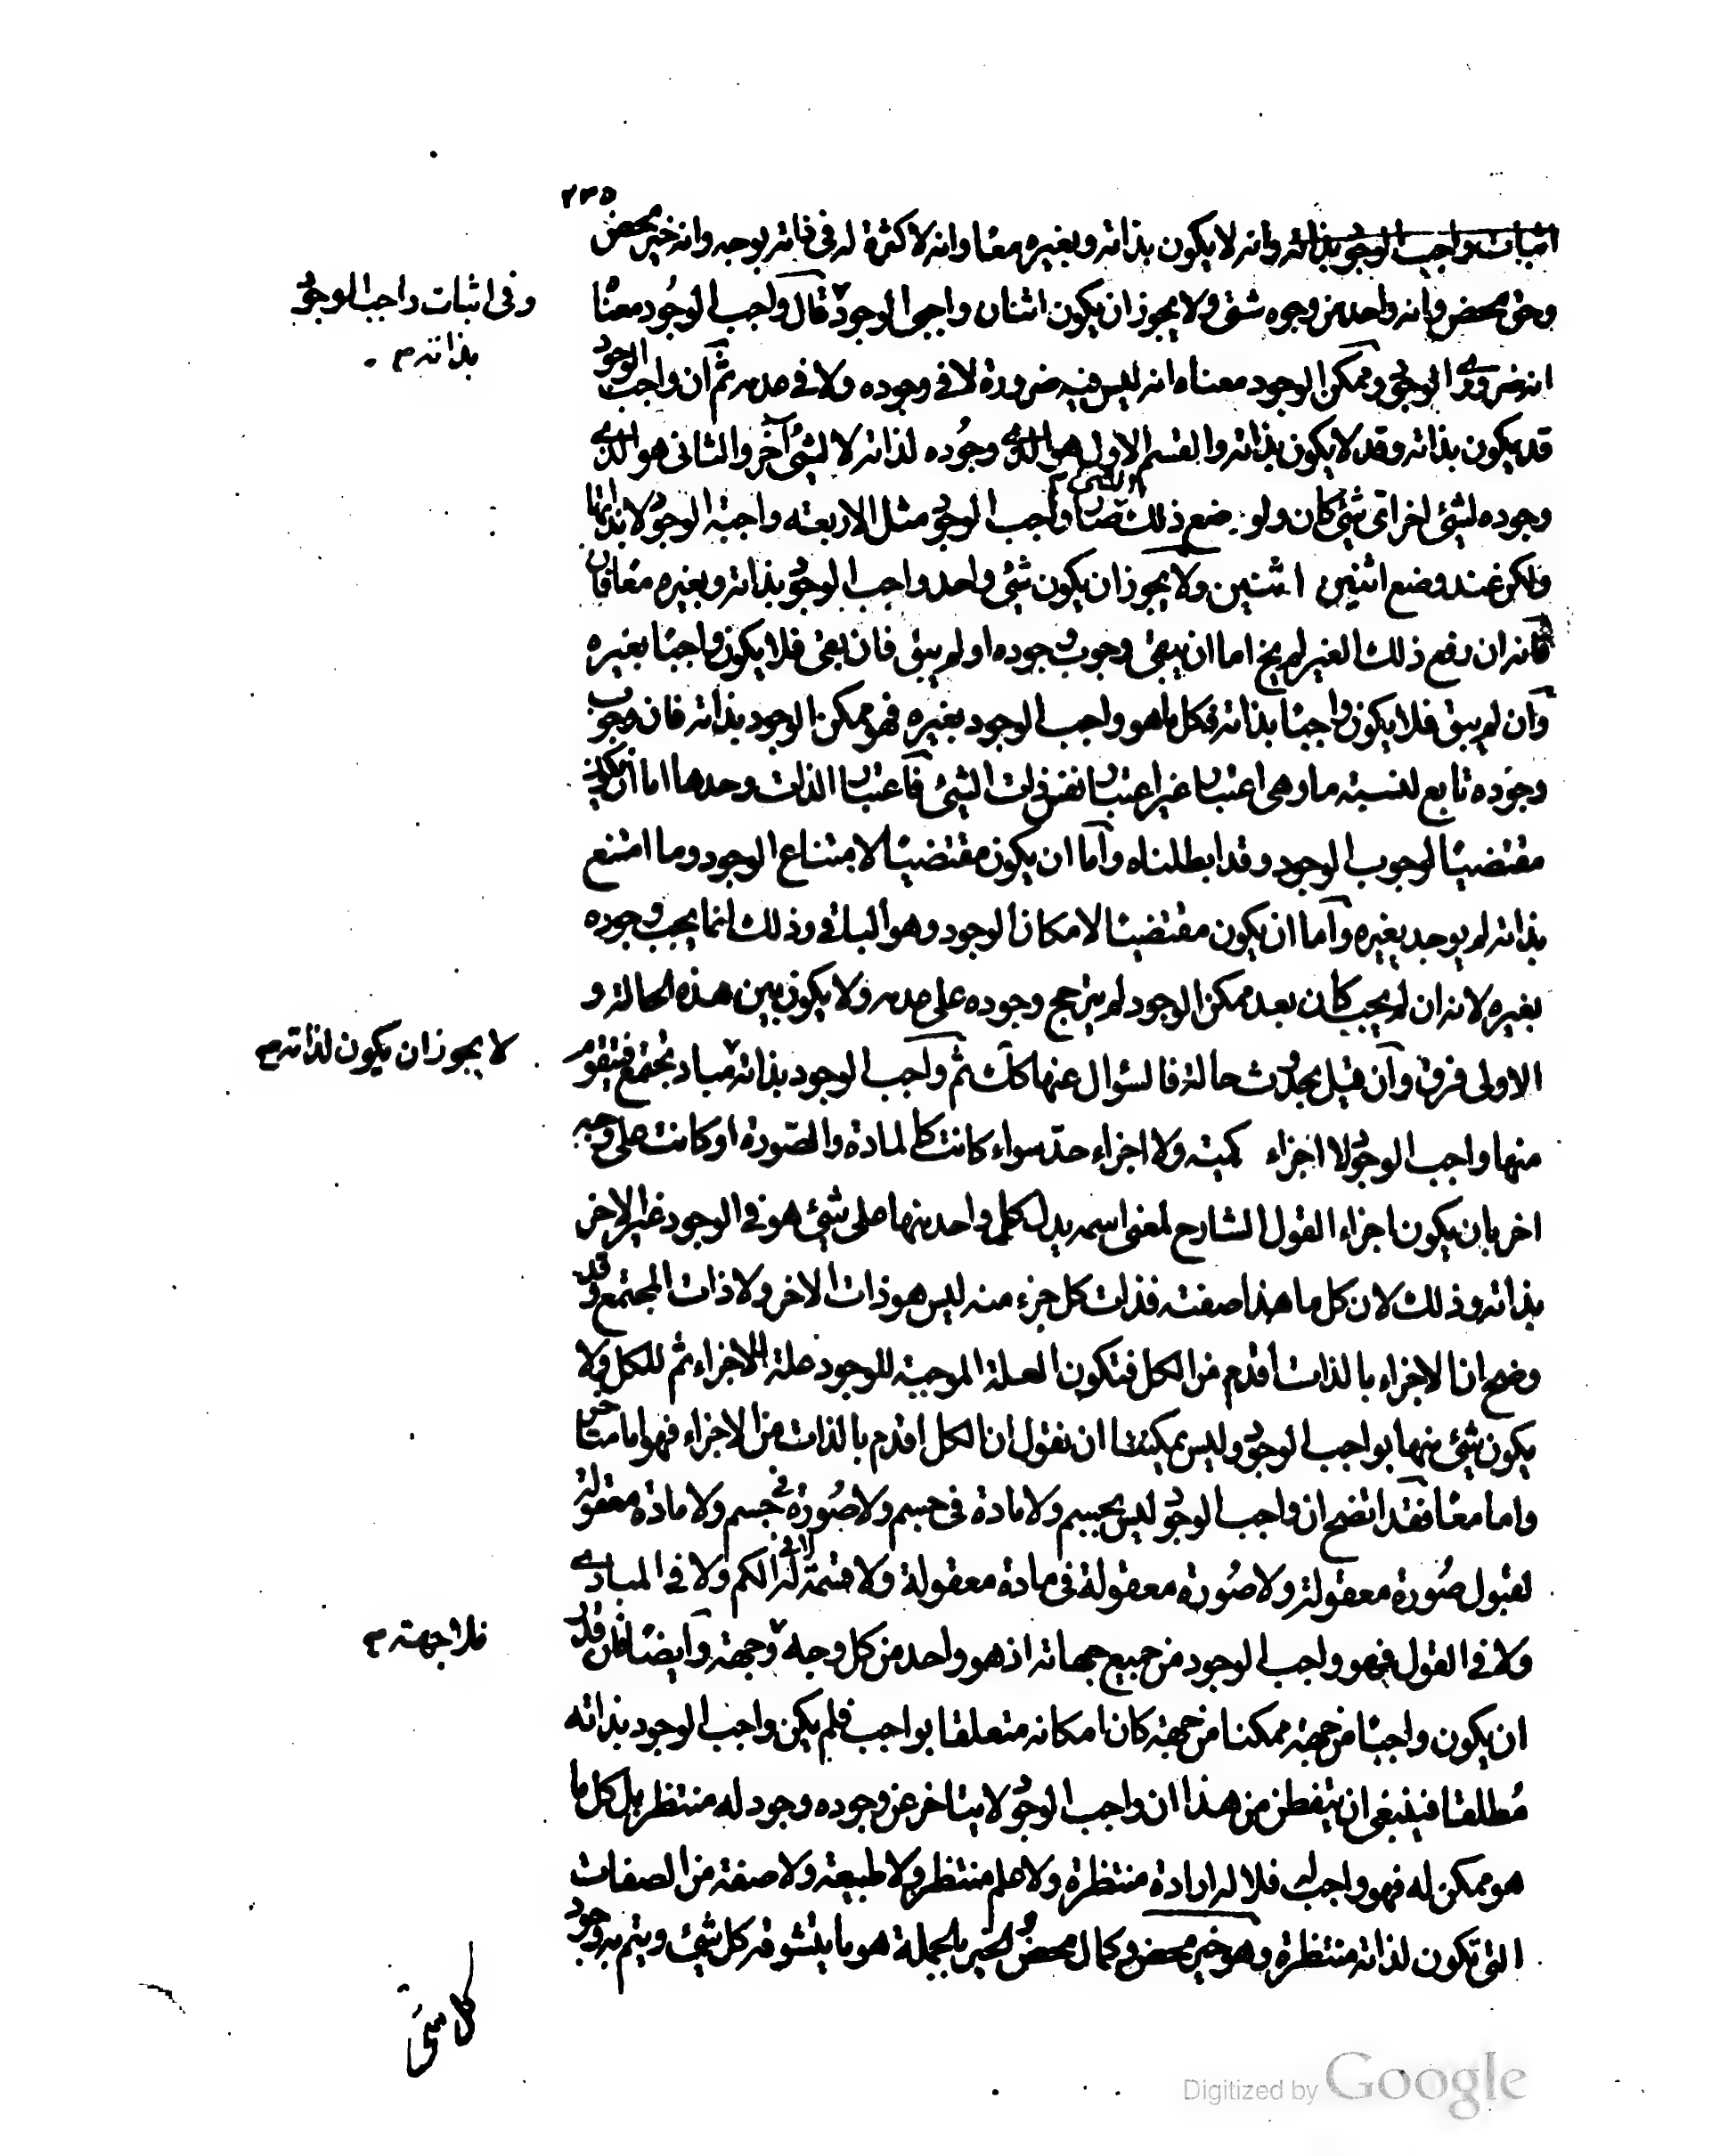 ٢٣٥
اثبات واجب الوجود بذاته وانه لا يكون بذاته وبغيره معا وانه لا كثرة له فى ذاته بوجه وانه خير محض
وفى اثبات واجب الوجود
بذاته م
وحق محض وانه واحد من وجوه شتى ولا يجوز ان يكون اثنان واجبى الوجود قال واجب الوجود معناه
انه ضرورى الوجود وممكن الوجود معناه انه ليس فيه ضرورة لا فى وجوده ولا فى عدمه ثم ان واجب الوجود
قد يكون بذاته وقد لا يكون بذاته والقسم الاول هو الذى وجوده لذاته لا لشئ آخر والثانى هو الذى
وجوده لشئ اخر اى شئ كان ولو وضع ذلك الشئ صار واجب الوجود مثل الاربعة واجبة الوجود لا بذاتها
ولكن عند وضع اثنين اثنين ولا يجوز ان يكون شئ واحد واجب الوجود بذاته وبغيره معا فان
فانه ان رفع ذلك الغير لم يخ اما ان يبقى وجوب وجوده او لم يبق فان بقى فلا يكون واجبا بغيره
وان لم يبق فلا يكون واجبا بذاته فكل ما هو واجب الوجود بغيره فهو ممكن الوجود بذاته فان وجوب
وجوده تابع لنسبة ما وهى اعتبار غير اعتبار نفس ذات الشئ فاعتبار الذات وحدها اما ان يكون
مقتضيا لوجوب الوجود وقد ابطلناه واما ان يكون مقتضيا لامتناع الوجود وما امتنع
بذاته لم يوجد بغيره واما ان يكون مقتضيا لامكان الوجود وهو الباقى وذلك انما يجب وجوده
بغيره لانه ان لم يجب كان بعد ممكن الوجود لم يترجح وجوده على عدمه ولا يكون بين هذه الحالة و
الاولى فرق وان قيل تجددت حالة فالسؤال عنها كك ثم واجب الوجود بذاته مباد تجتمع فيتقوم
لا يجوز ان يكون لذاته م
منها واجب الوجود لا اجزاء كمية ولا اجزاء حد سواء كانت كالمادة والصورة او كانت على وجه
اخر بان يكون اجزاء القول الشارح لمعنى اسمه يدل كل واحد منها على شئ هو فى الوجود غير الاخر
بذاته وذلك لان كل ما هذا صفته فذات كل جزء منه ليس هو ذات الاخر ولا ذات المجتمع وقد
وضح ان الاجزاء بالذات اقدم من الكل فتكون العلة الموجبة للوجود علة للاجزاء ثم للكل ولا
يكون شئ منها بواجب الوجود وليس يمكننا ان نقول ان الكل اقدم بالذات من الاجزاء فهو اما متاخر
واما معا فقد اتضح ان واجب الوجود ليس بجسم ولا مادة فى جسم ولا صورة فى جسم ولا مادة معقولة
لقبول صورة معقولة ولا صورة معقولة فى مادة معقولة ولا قسمة له لا فى الكم ولا فى المبادى
ولا فى القول فهو واجب الوجود من جميع جهاته اذ هو واحد من كل وجه وجهة وايضا فان قدر
فلا جهة م
ان يكون واجبا من جهة ممكنا من جهة كان امكانه متعلقا بواجب فلم يكن واجب الوجود بذاته
مطلقا فينبغى ان يتفطن من هذا ان واجب الوجود لا يتاخر عن وجوده وجود له منتظر بل كل ما
هو ممكن له فهو واجب له فلا له ارادة منتظرة ولا علم منتظر ولا طبيعة ولا صفة من الصفات
التى تكون لذاته منتظرة وهو خير محض وكمال محض والخير بالجملة هو ما يتشوقه كل شئ ويتم به وجود
كل شئ
Digitized by Google